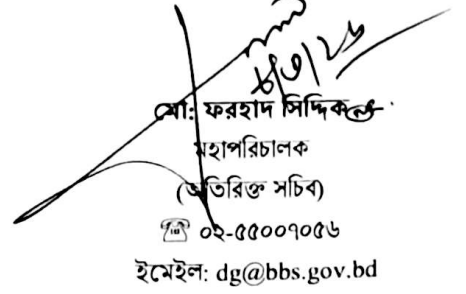 ৮/৩/২৬
মো: ফরহাদ সিদ্দিক
মহাপরিচালক
(অতিরিক্ত সচিব)
☎ ০২-৫৫০০৭০৫৬
ইমেইল: dg@bbs.gov.bd